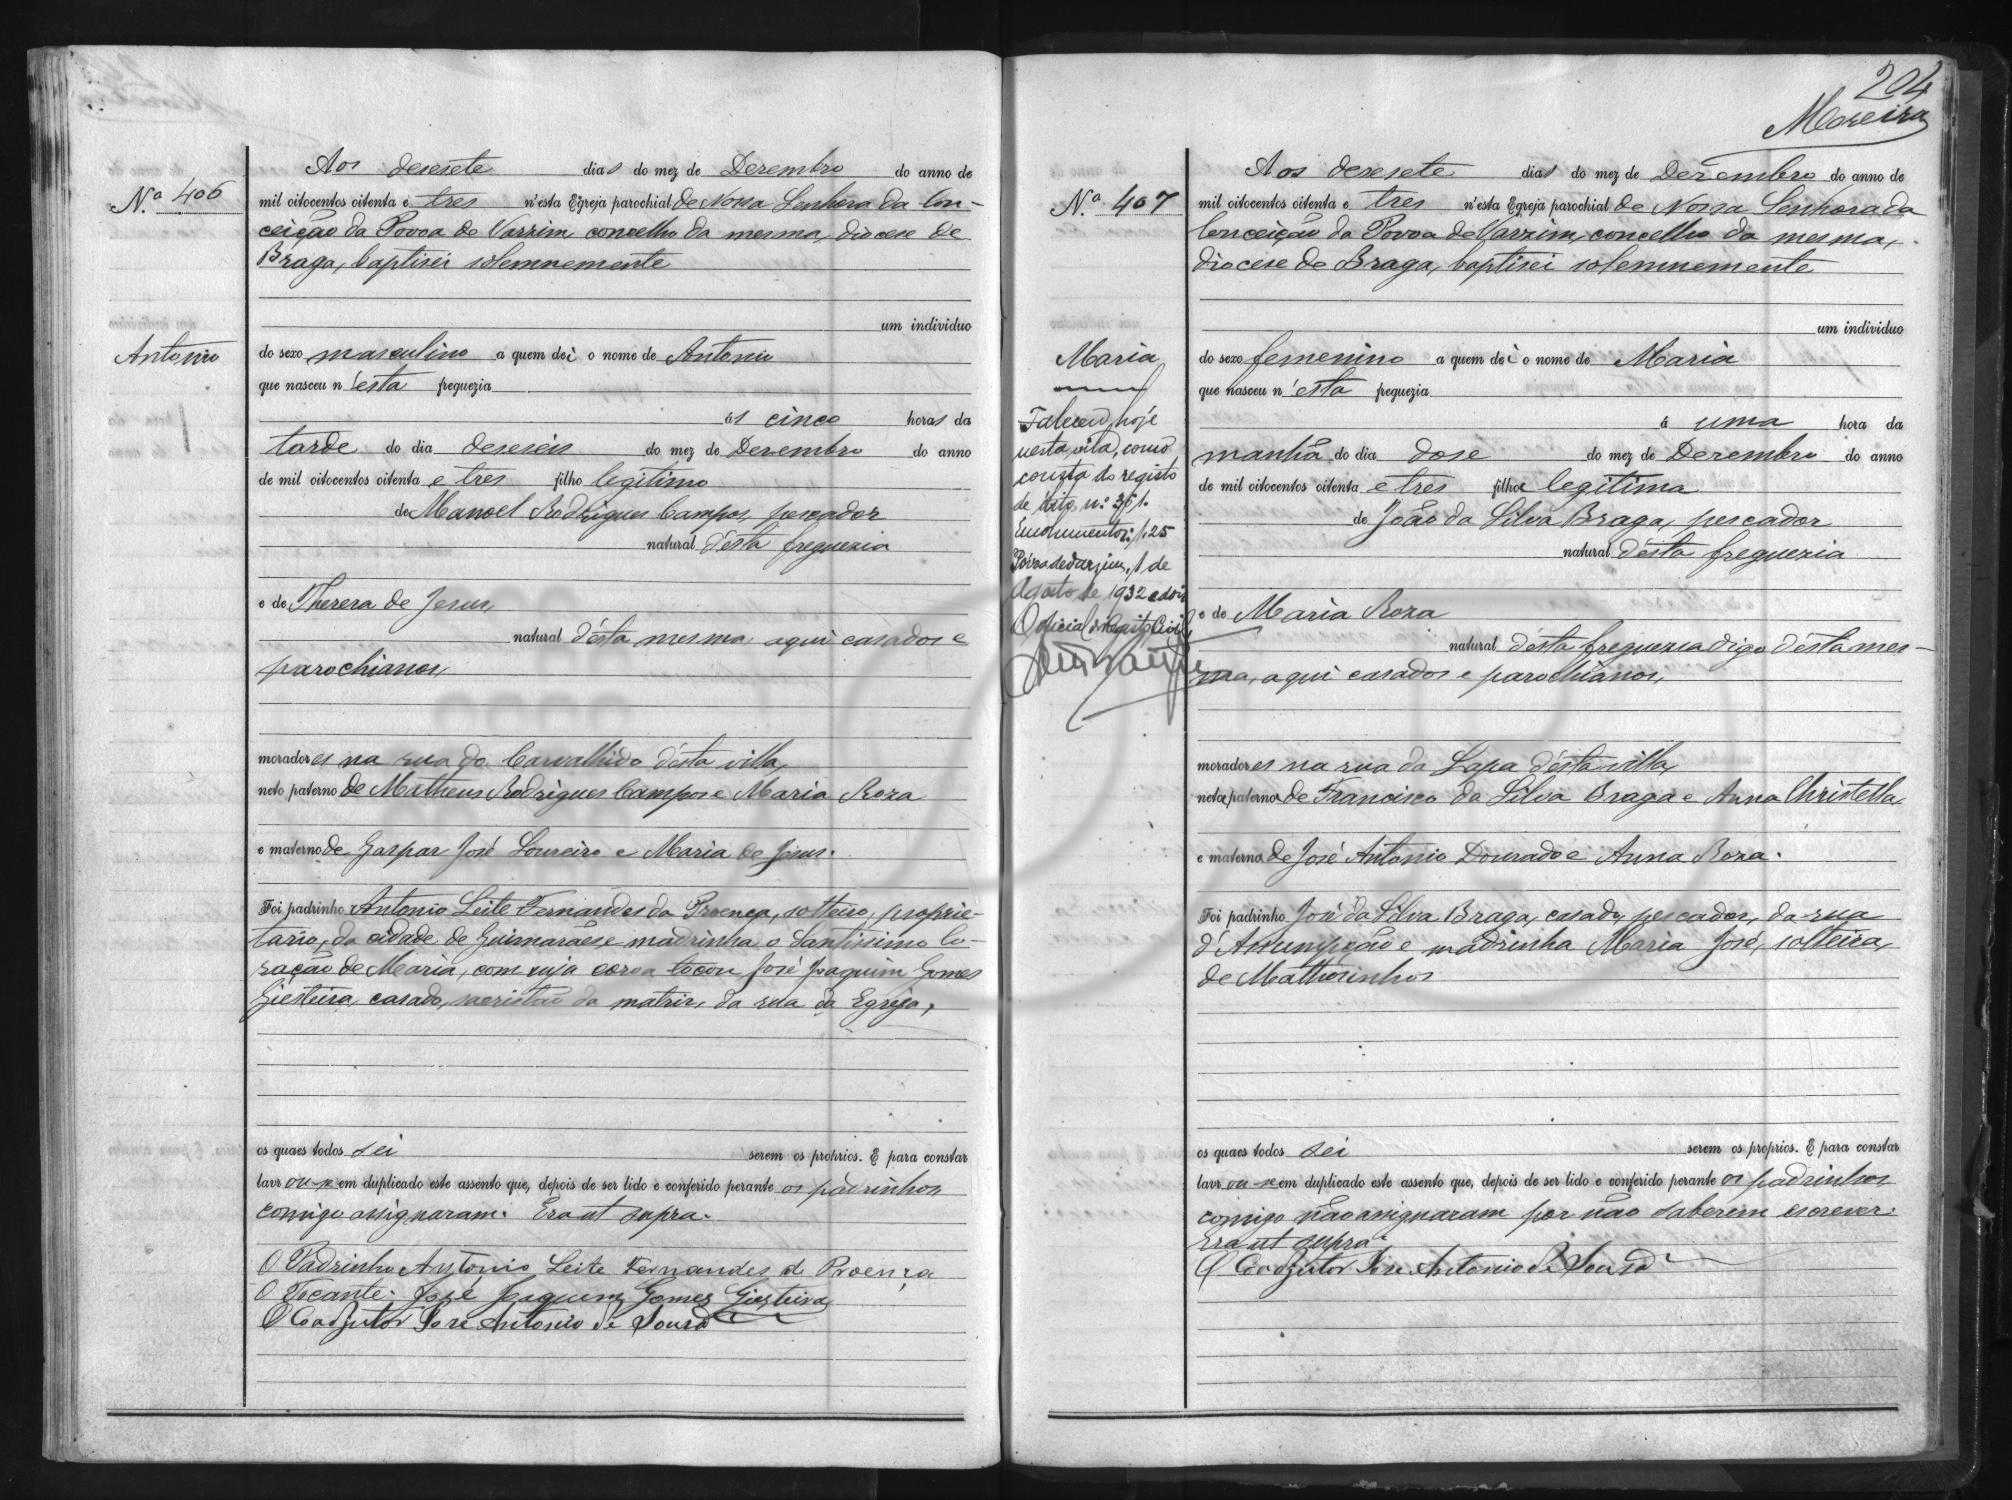 Nº 406
Antonio
Aos desesete dias do mez de Dezembro do anno de
mil oitocentos oitenta e tres n'esta Egreja parochial de Nossa Senhora da Con-
ceição da Povoa de Varzim concelho da mesma, diocese de
Braga, baptisei solemnemente
um individuo
do sexo masculino a quem dei o nome de Antonio
que nasceu n'esta freguezia
ás cinco horas da
tarde do dia deseseis do mez de Dezembro do anno
de mil oitocentos oitenta e tres filho legitimo
de Manoel Rodrigues Campos, pescador
natural d'esta freguezia
e de Thereza de Jesus,
natural d'esta mesma aqui casados e
parochianos,
moradores na rua do Carvalhido d'esta villa,
neto paterno de Matheus Rodrigues Campos e Maria Roza
e materno de Gaspar José Loureiro e Maria de Jesus.
Foi padrinho Antonio Leite Fernandes da Proença, solteiro, proprie-
tario, da cidade de Guimarães e madrinha o Santissimo Co-
ração de Maria, com cuja coroa tocou José Joaquim Gomes
Giesteira, casado, sacristão da matriz, da rua da Egreja,
os quaes todos sei serem os proprios. E para constar
lavrou-se em duplicado este assento que, depois de ser lido e conferido perante os padrinhos
comigo assignaram. Era ut supra.
O Padrinho Antonio Leite Fernandes de Proença
O Tocante. José Joaquim Gomes Giesteira
O Coadjutor José Antonio de Souza
204
Moreira
Nº 407
Maria
Faleceu hoje
nesta vila, como
consta do registo
de obito nº 361.
Emolumentos: 1,25
Póvoa de Varzim, 1 de
Agosto de 1932 e dois
O oficial do Registo Civil
Aos desesete dias do mez de Dezembro do anno de
mil oitocentos oitenta e tres n'esta Egreja parochial de Nossa Senhora da
Conceição da Povoa de Varzim, concelho da mesma,
diocese de Braga, baptisei solemnemente
um individuo
do sexo femenino a quem dei o nome de Maria
que nasceu n'esta freguezia
á uma hora da
manhã do dia dose do mez de Dezembro do anno
de mil oitocentos oitenta e tres filha legitima
de João da Silva Braga, pescador
natural d'esta freguezia
e de Maria Roza
natural d'esta freguezia digo d'esta mes-
ma, aqui casados e parochianos,
moradores na rua da Lapa d'esta villa,
neta paterna de Francisco da Silva Braga e Anna Christella
e materna de José Antonio Dourado e Anna Roza.
Foi padrinho José da Silva Braga, casado, pescador, da rua
d'Assumpção e madrinha Maria José, solteira,
de Mathosinhos
os quaes todos sei serem os proprios. E para constar
lavrou-se em duplicado este assento que, depois de ser lido e conferido perante os padrinhos
comigo não assignaram por não saberem escrever.
Era ut supra.
O Coadjutor José Antonio de Souza